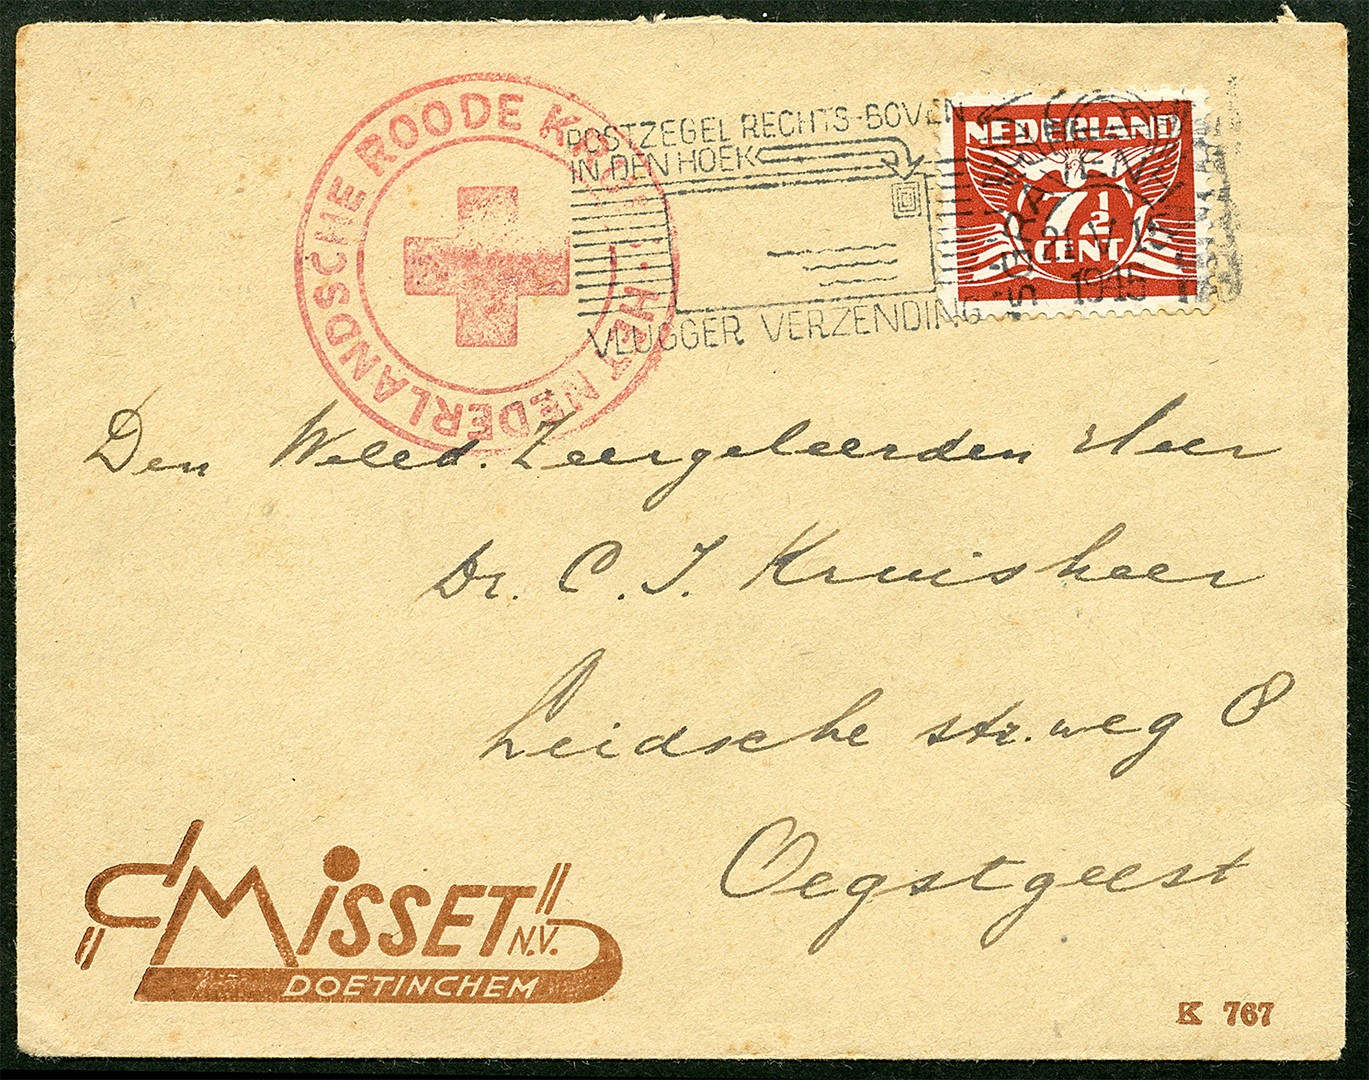 HET NEDERLANDSCHE ROODE
POSTZEGEL RECHTS-BOVEN
IN DEN HOEK
VLUGGER VERZENDING
NEDERLAND
7½
CENT
Den Weled. Zeergeleerden Heer
Dr. C. J. Kruisheer
Leidsche str.weg 8
Oegstgeest
C MISSET N.V.
DOETINCHEM
K 767